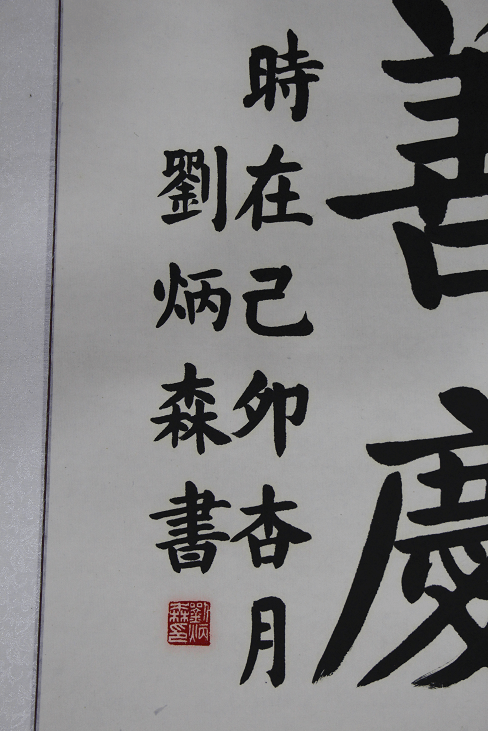 善慶
時在己卯杏月
劉炳森書
劉炳森印